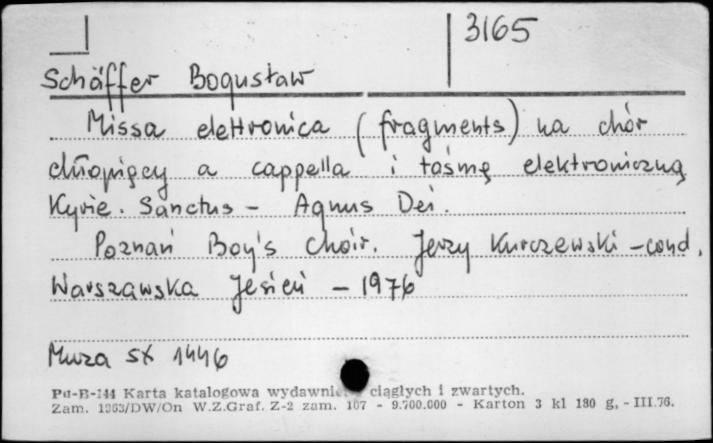 3165
Schäffer Bogusław
Missa elettronica (fragments) na chór
chłopięcy a cappella i taśmę elektroniczną
Kyrie. Sanctus - Agnus Dei.
Poznań Boy's Choir. Jerzy Kurczewski - cond.
Warszawska Jesień - 1976
Muza SX 1446
Pu-B-144 Karta katalogowa wydawnic ciągłych i zwartych.
Zam. 1963/DW/On W.Z.Graf. Z-2 zam. 107 - 9.700.000 - Karton 3 kl 180 g, - III.76.